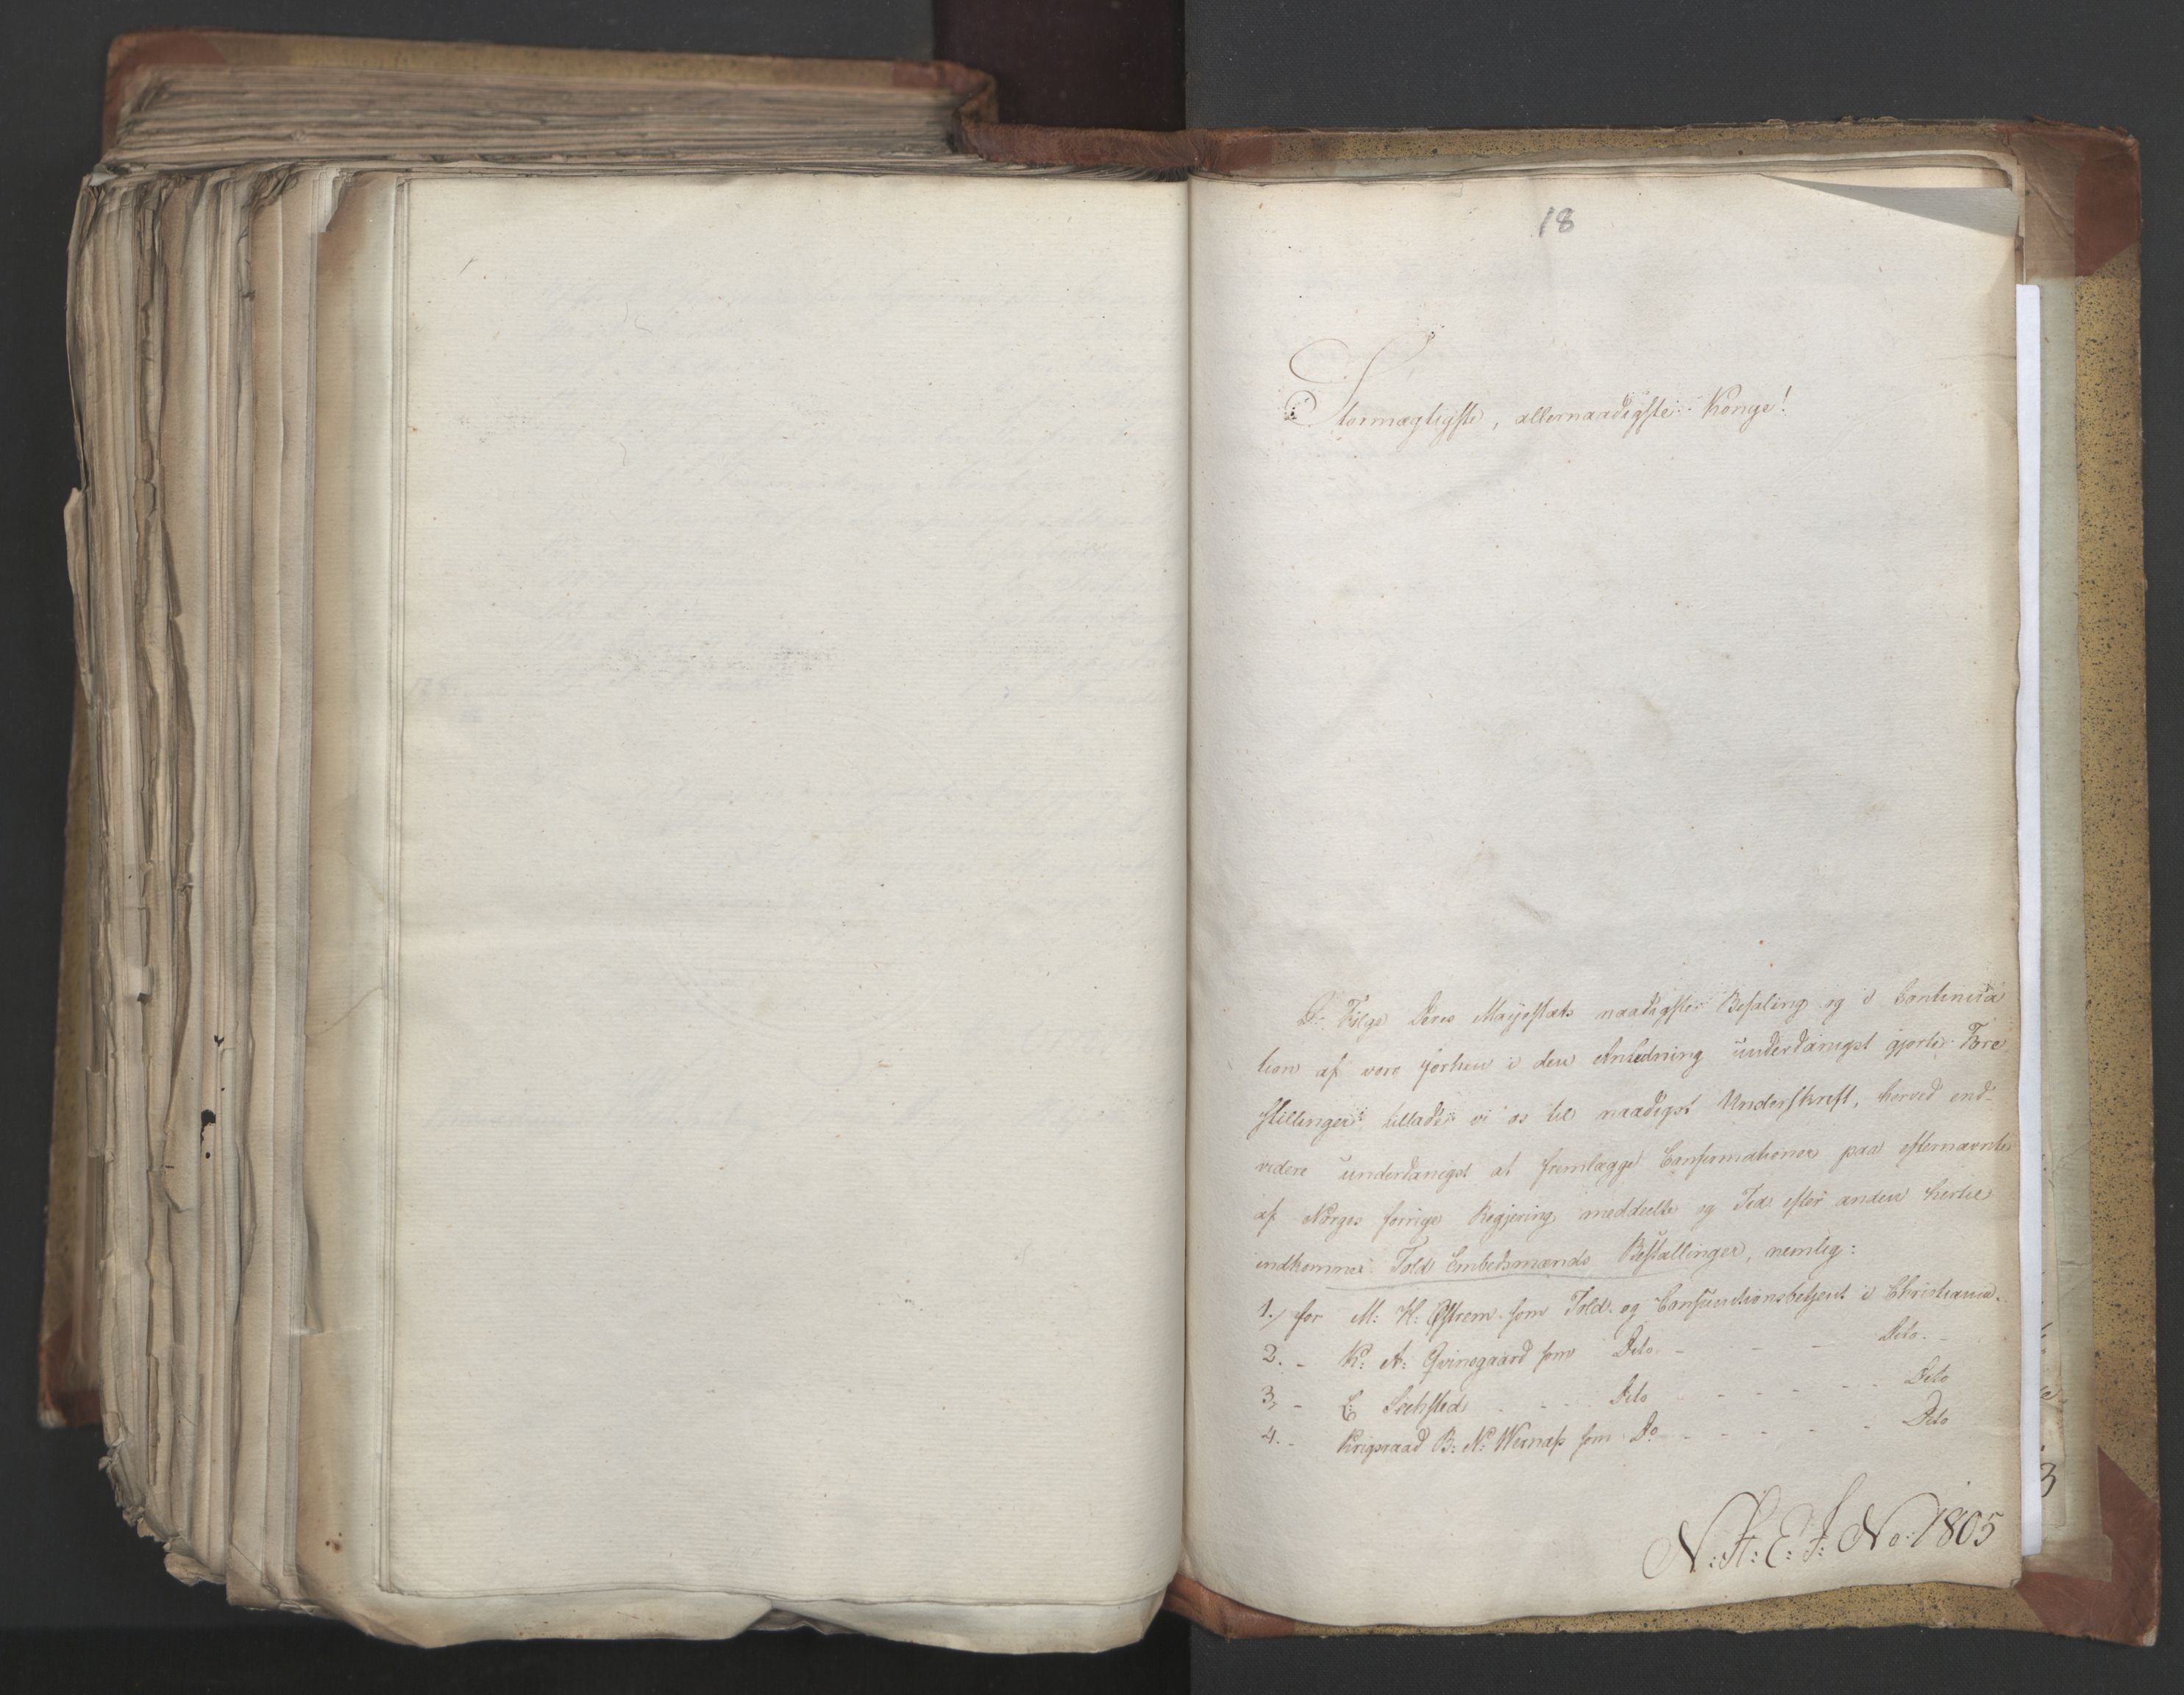 18
Stormægtigste, allernaadigste Konge!
I Følge Deres Majestæts naadigste Befaling og i Continua
tion af vore forhen i den Anledning underdanigst gjorte Fore
stillinger tillade vi os til naadigst Underskrift, herved end-
videre underdanigst at fremlægge Confirmationer paa efternævnte
af Norges forrige Regjering meddeelte og Tid efter anden hertil
indkomne Told Embedsmænds Bestallinger, nemlig:
1./ for M: H: Østrem som Told- og Consumtionsbetjent i Christiania.
2. - K: A: Qvinsgaard som Dito - - - Dito. -
3, - C: Siehsted - - - Dito - - - - - Dito
4. - Krigsraad B: N: Wernass som Do - - - - - Dito
N: F: E: F: No: 1805